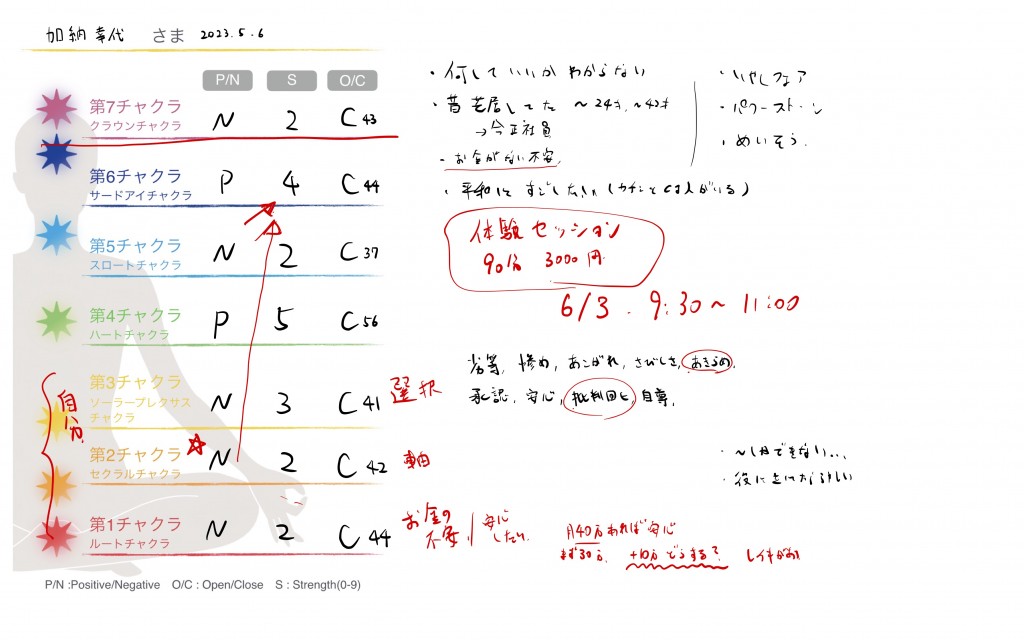 加納幸代 さま 2023.5.6
P/N S O/C
第7チャクラ
クラウンチャクラ
N 2 C 43
第6チャクラ
サードアイチャクラ
P 4 C 44
第5チャクラ
スロートチャクラ
N 2 C 37
第4チャクラ
ハートチャクラ
P 5 C 56
第3チャクラ
ソーラープレクサス
チャクラ
N 3 C 41 選択
自分
第2チャクラ
セクラルチャクラ
N 2 C 42 軸
第1チャクラ
ルートチャクラ
N 2 C 44 お金の
不安 安心
したい
P/N :Positive/Negative O/C : Open/Close S : Strength(0-9)
・何していいかわからない
・昔芝居してた ~24才,~43才
→今正社員
・お金がない不安,
・平和にすごしたい(カチンとくる人がいる)
・いやしフェア
・パワーストーン
・めいそう.
体験セッション
90分 3000円
6/3. 9:30~11:00
劣等, 惨め, あこがれ, さびしさ, あきらめ
承認, 安心, 批判回ヒ, 自尊,
・~しかできない...
・役に立てたらうれしい
月40万あれば安心
まず30万. +10万どうする?